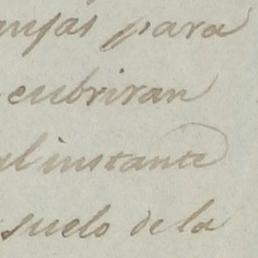 anjas para
cubriran
al instante
suelo de la